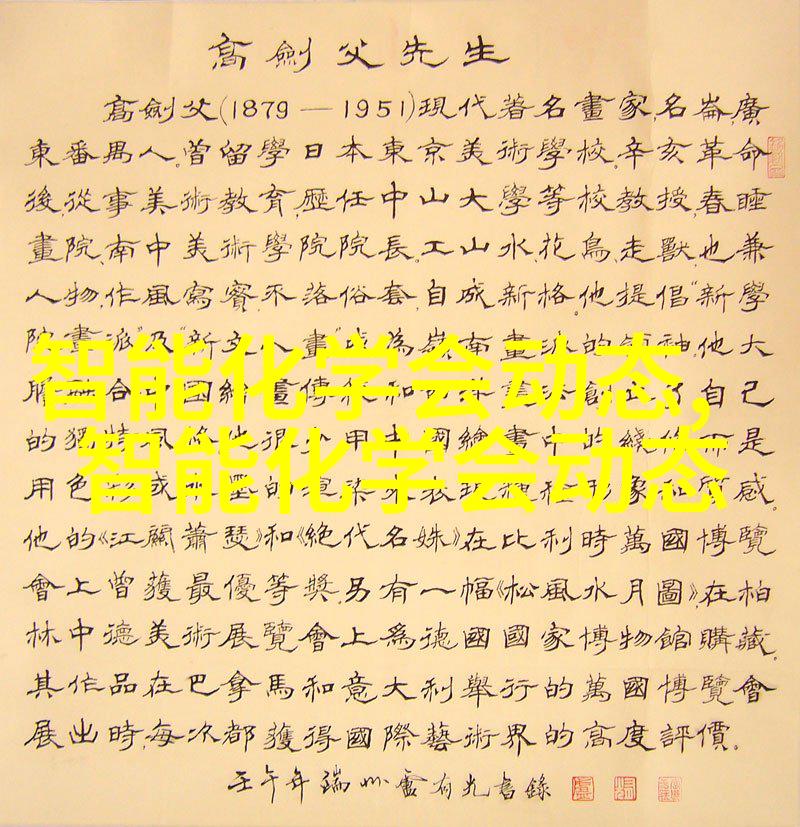 高劍父先生
高劍父(1879—1951)現代著名畫家,名崙,廣
東番禺人。曾留學日本東京美術學校.辛亥革命
後,從事美術教育,歷任中山大學等校教授,春睡
畫院,南中美術學院院長。工山水,花鳥,走獸,也兼
人物,作風寫實,不落俗套,自成新格。他提倡"新學
院畫派"及"新文人畫"成為嶺南畫派的領袖,他大
智能化学会动态,
膽 合 國繪畫傳 和 創 了自己
的獨特風格他很少 中國繪畫中的線條而是
智能化学会动态
用色 或 墨的渲染來表現 形象 質感。
他的《江關蕭瑟》和《絕代名姝》在比利時萬國博覽
會上曾獲最優等獎,另有一幅《松風水月圖》,在柏
林中德美術展覽會上為德國國家博物館購藏。
其作品在巴拿馬和意大利舉行的萬國博覽會
展出時,每次都獲得國際藝術界的高度評價。
壬午年端州 有光書錄